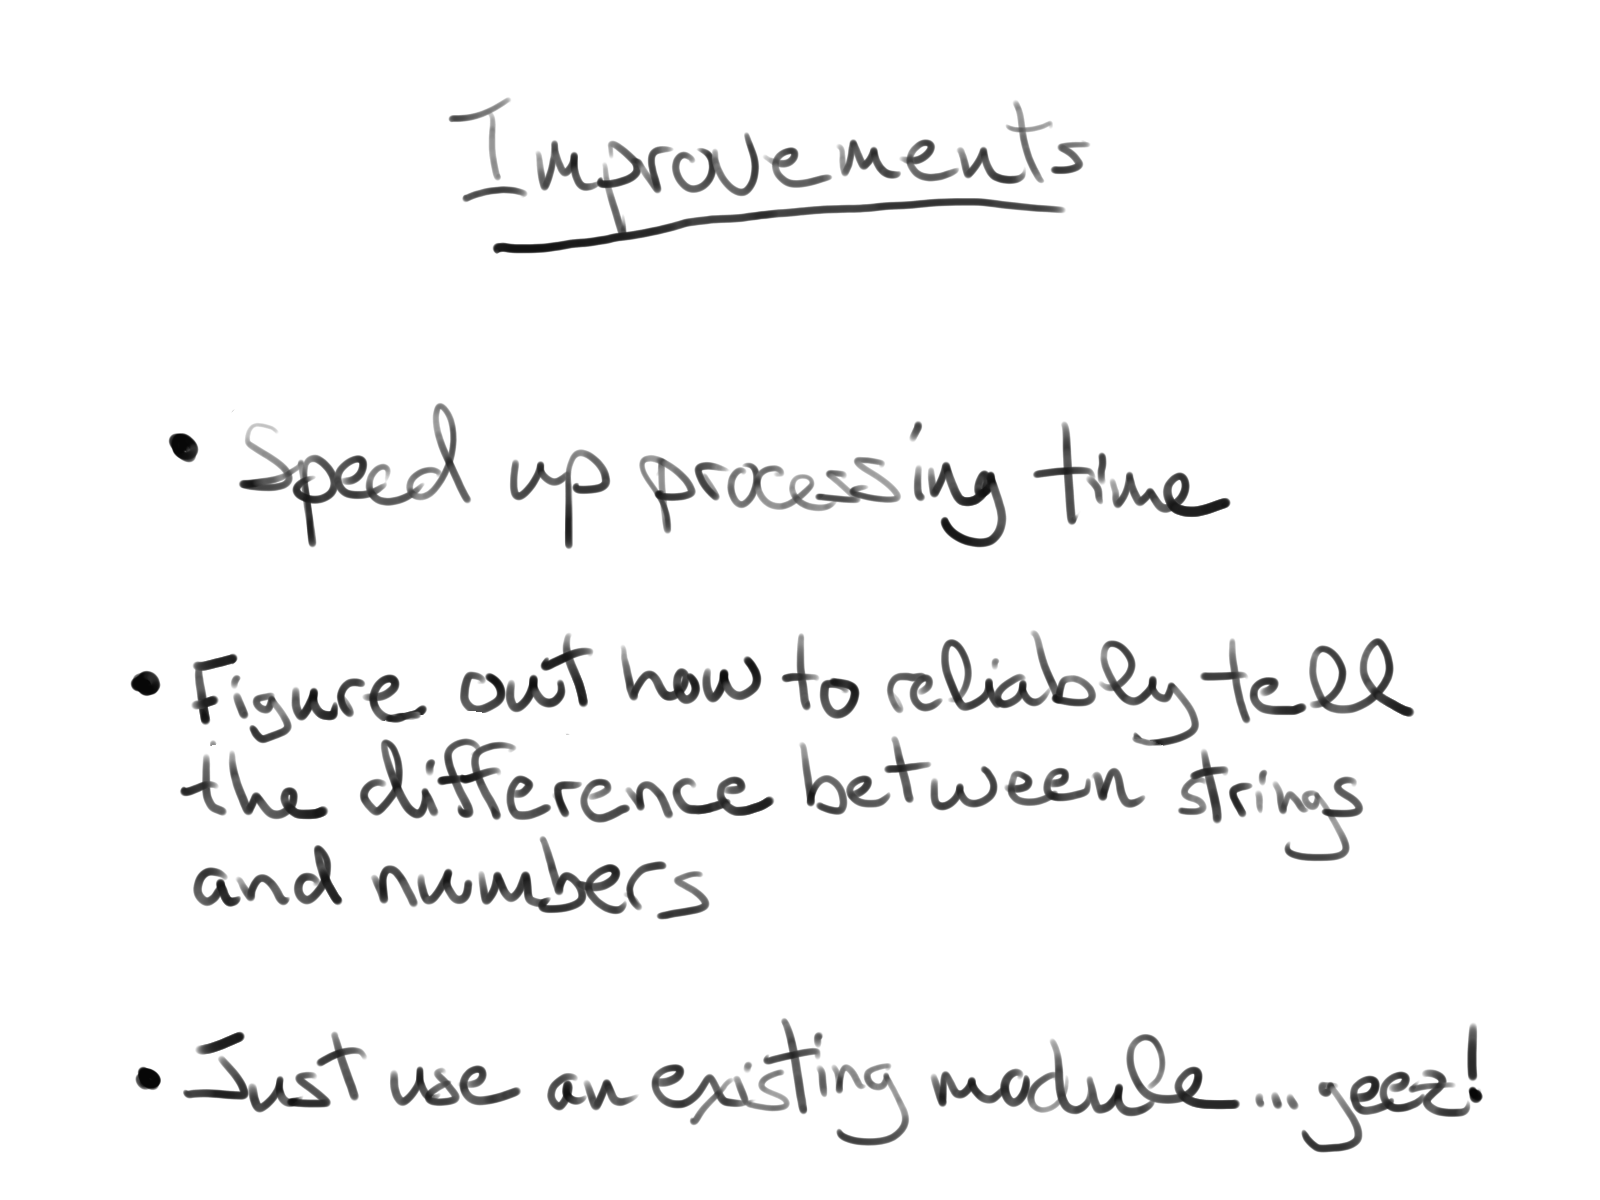 Improvements
• Speed up processing time
• Figure out how to reliably tell
the difference between strings
and numbers
• Just use an existing module...geez!